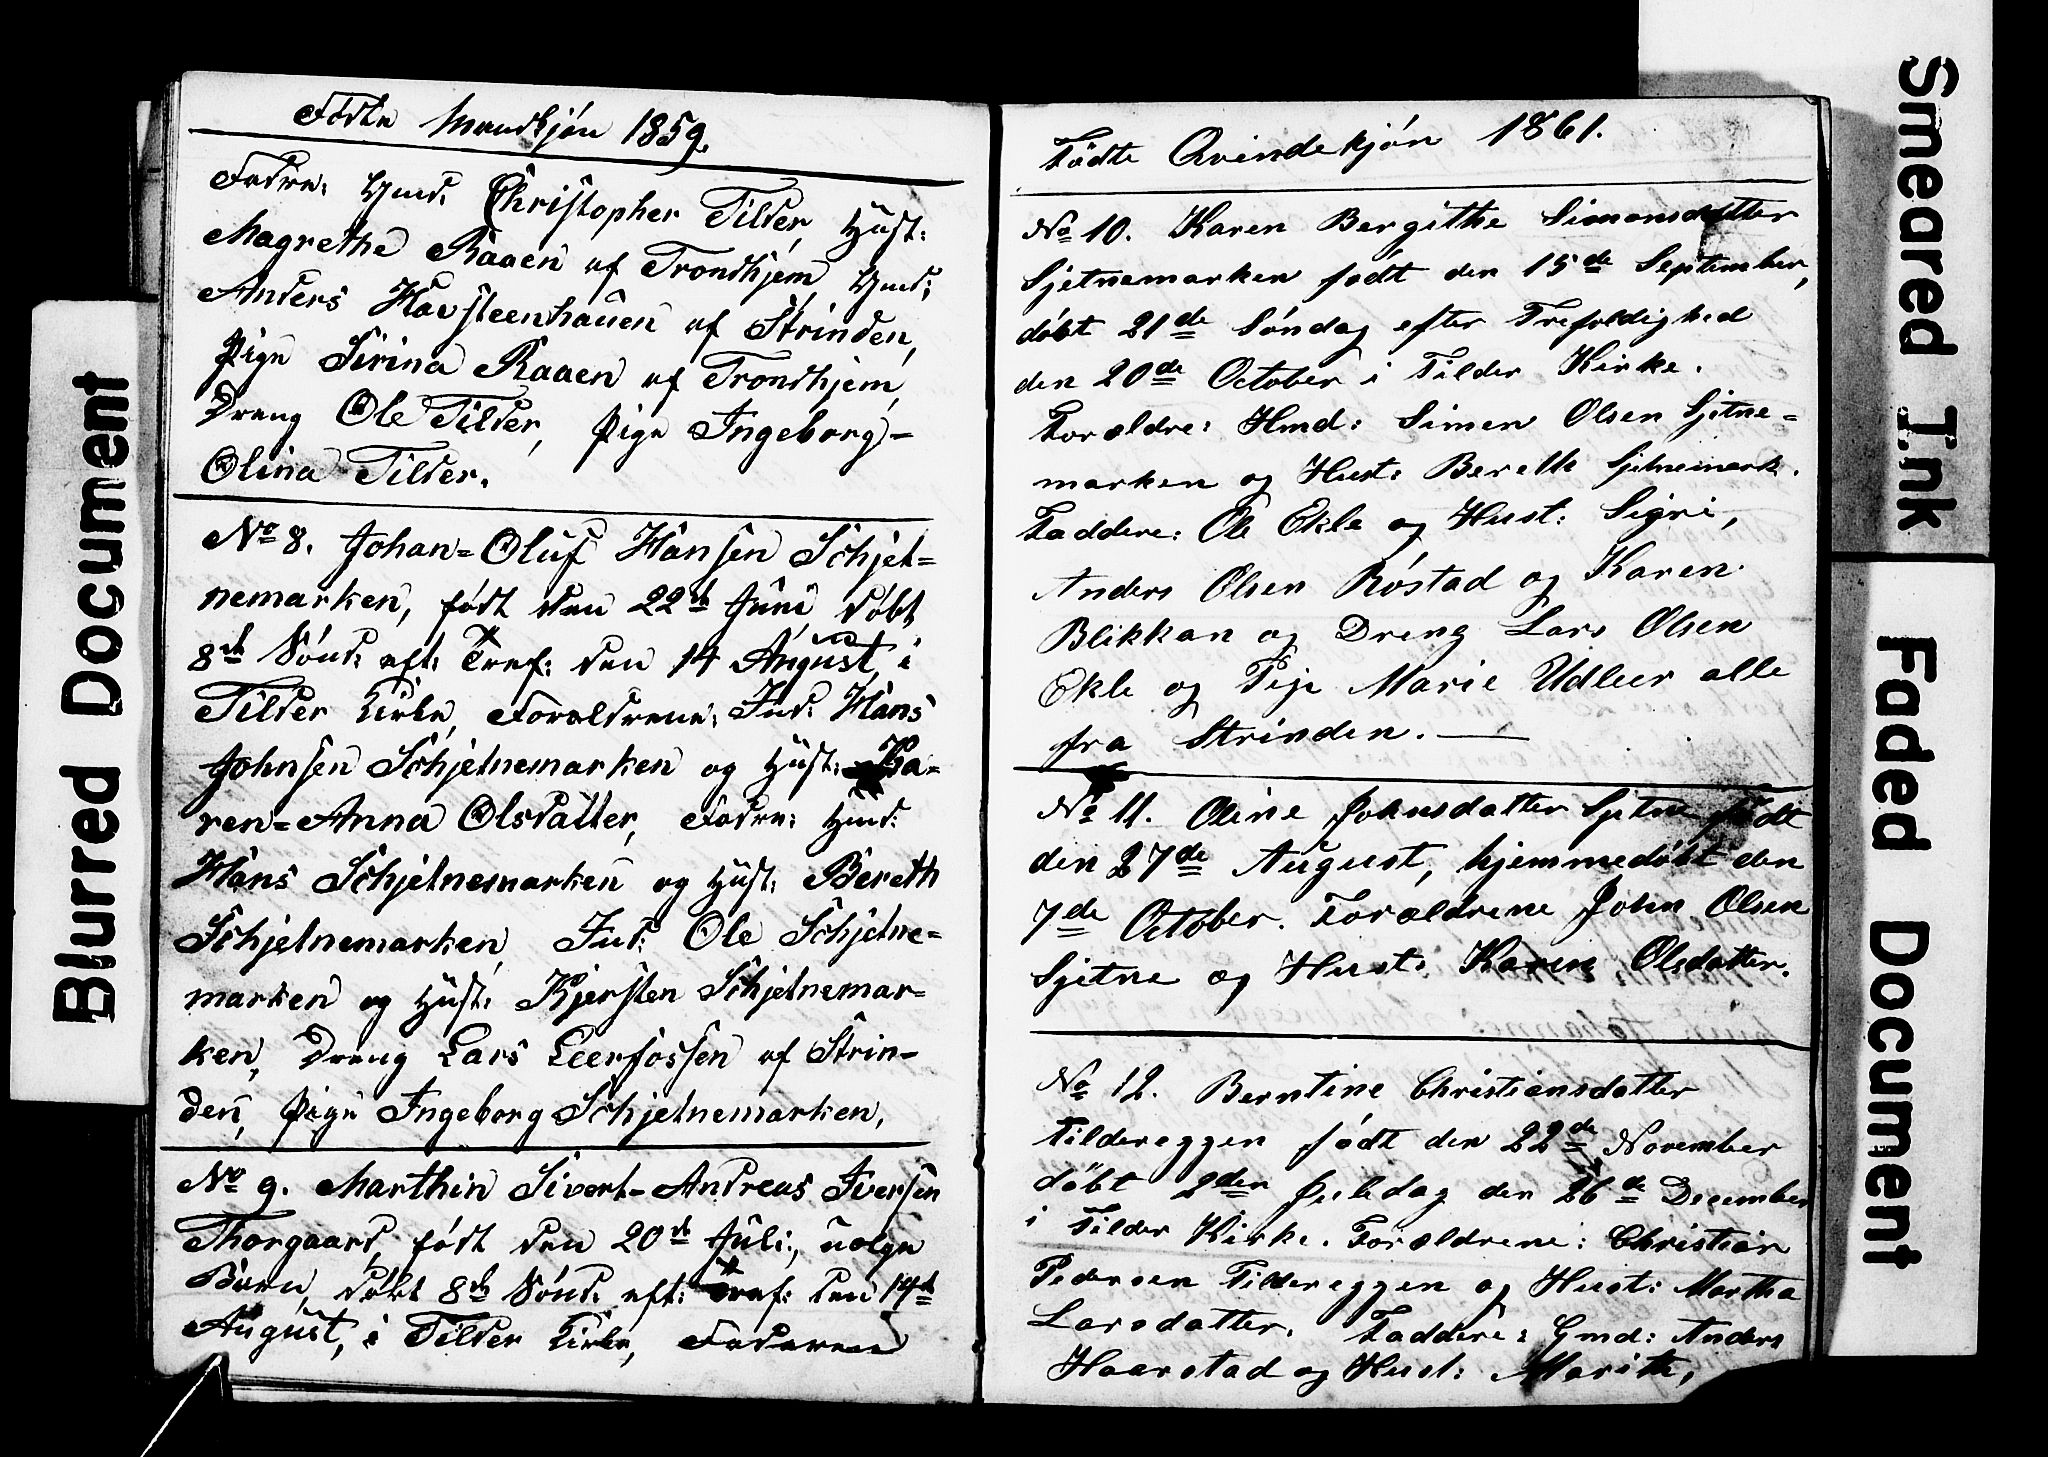 Fødte Mandkjøn 1859.
Fadre: Gmd. Christopher Tilder, Hust:
Magrethe Raaen af Trondhjem, Gmd:
Anders Havsteenhauen af Strinden,
Pige Sirina Raaen af Trondhjem,
Dreng Ole Tilder, Pige Ingeborg-
Olina Tilder.
No 8. Johan=Oluf Hansen Schjet=
nemarken, født den 22de Juni, døbt
8de Sønd: eft: Tref: den 14 August, i
Tilder Kirke, Forældrene: Ind: Hans
Johnsen Schjetnemarken og Hust: Ka=
ren=Anna Olsdatter, Fadre: Hmd:
Hans Schjetnemarken og Hust: Bereth
Schjetnemarken, Ind: Ole Schjetne=
marken og Hust: Kjersten Schjetnemar=
ken, Dreng Lars Leerfossen af Strin=
den, Pige Ingeborg Schjetnemarken.
No 9. Marthin Sivert=Andreas Iversen
Thorgaard, født den 20de Juli, uægte
Barn, døbt 8de Sønd: eft: Tref: den 14de
August, i Tilder Kirke,
Fødte Qvindekjøn 1861.
No 10. Karen Bergithe Simonsdatter
Sjetnemarken født den 15de September,
døbt 21de Søndag efter Trefoldighed
den 20de October i Tilder Kirke.
Forældre: Hmd: Simen Olsen Sjetne=
marken og Hust: Bereth Sjetnemark.
Faddere: Ole Ekle og Hust: Sigri,
Anders Olsen Røstad og Karen
Blikkan og Dreng Lars Olsen
Ekle og Pige Marie Udleer alle
fra Strinden. —
No 11. Oline Johnsdatter Sjetne født
den 27de August, hjemmedøbt den
7de October. Forældrene John Olsen
Sjetne og Hust: Karen Olsdatter.
No 12. Berntine Christiansdatter
Tildereggen født den 22de November
døbt 2den Juledag den 26de December
i Tilder Kirke. Forældrene: Christian
Pedersen Tildereggen og Hust: Martha
Larsdatter. Faddere: Gmd: Anders
Haarstad og Hust: Marith,
Blurred Document
Smeared Ink
Faded Document